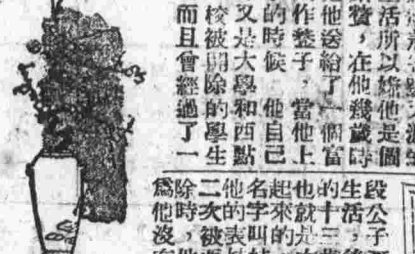 活所以嫁他是個
,在他幾歲時
他送給了一個富
作養子,當他上
的時候 他自己
又是大學和西點
校被開除的學生
而且曾經過了一
段公子
生活,後
的十三
也就是
起來的
名字叫
他的表
二次被
除時,他
爲他沒